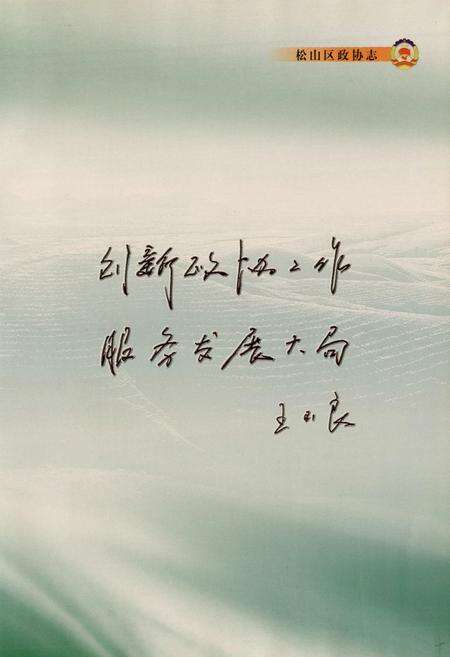 松山区政协志
创新政协工作
服务发展大局
王玉良